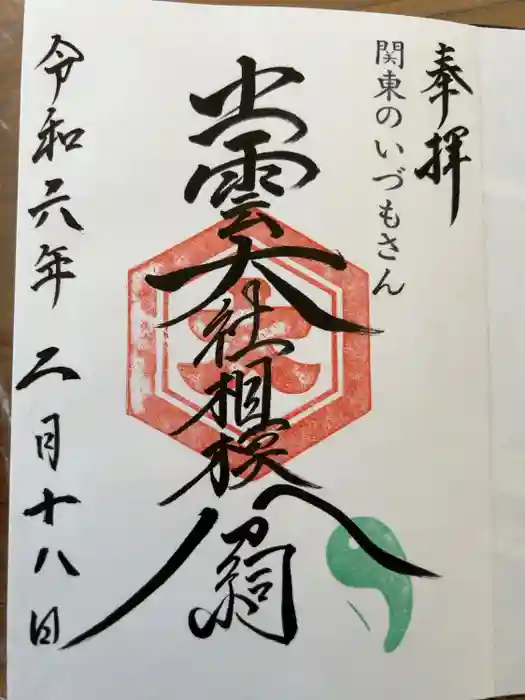 奉拝
関東のいづもさん
出雲大社相模分祠
令和六年二月十八日
大